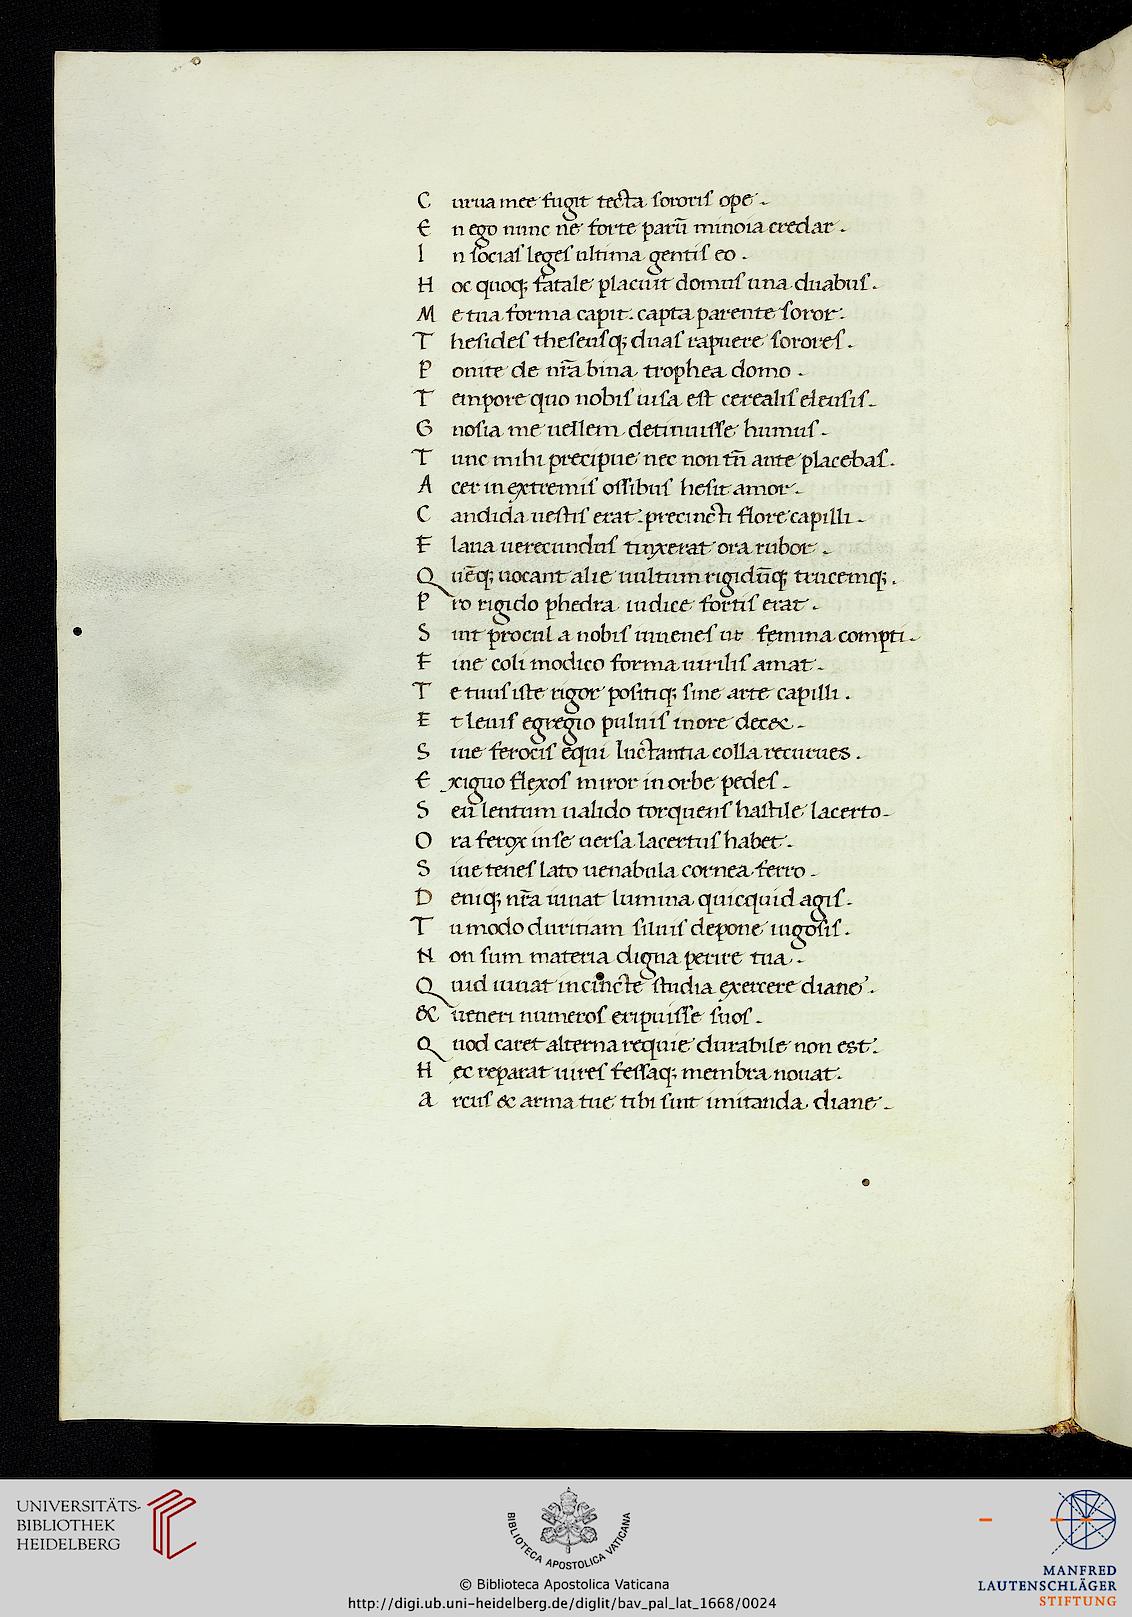 C urua mee fugit tecta sororis ope.
E n ego nunc ne forte parū minoia credar.
I n socias leges ultima gentis eo.
H oc quoq; fatale placuit domus una duabus.
M e tua forma capit. capta parente soror.
T hesides theseusq; duas rapuere sorores.
P onite de nr̄a bina trophea domo.
T empore quo nobis uisa est cerealis eleusis.
G nosia me uellem detinuisse humus.
T unc mihi precipue nec non tn̄ ante placebas.
A cer in extremis ossibus hesit amor.
C andida uestis erat. precincti flore capilli.
F laua uerecundus tinxerat ora rubor.
Q uēq; uocant alie uultum rigidūq; trucemq;.
P ro rigido phedra iudice fortis erat.
S int procul a nobis iuuenes ut femina compti.
F ine coli modico forma uirilis amat.
T e tuus iste rigor positiq; sine arte capilli.
E t leuis egregio puluis inore decet.
S iue ferocis equi luctantia colla recurues.
E xiguo flexos miror in orbe pedes.
S eu lentum ualido torquens hastile lacerto.
O ra ferox inse uersa lacertus habet.
S iue tenes lato uenabula cornea ferro.
D eniq; nr̄a iuuat lumina quicquid agis.
T u modo duritiam siluis depone iugosis.
N on sum materia digna perire tua.
Q uid iuuat incincte studia exercere diane.
& ueneri numeros eripuisse suos.
Q uod caret alterna requie durabile non est.
H ec reparat uires fessaq; membra nouat.
a rcus & arma tue tibi sint imitanda diane.
UNIVERSITÄTS-
BIBLIOTHEK
HEIDELBERG
BIBLIOTECA APOSTOLICA VATICANA
© Biblioteca Apostolica Vaticana
http://digi.ub.uni-heidelberg.de/diglit/bav_pal_lat_1668/0024
MANFRED
LAUTENSCHLÄGER
STIFTUNG